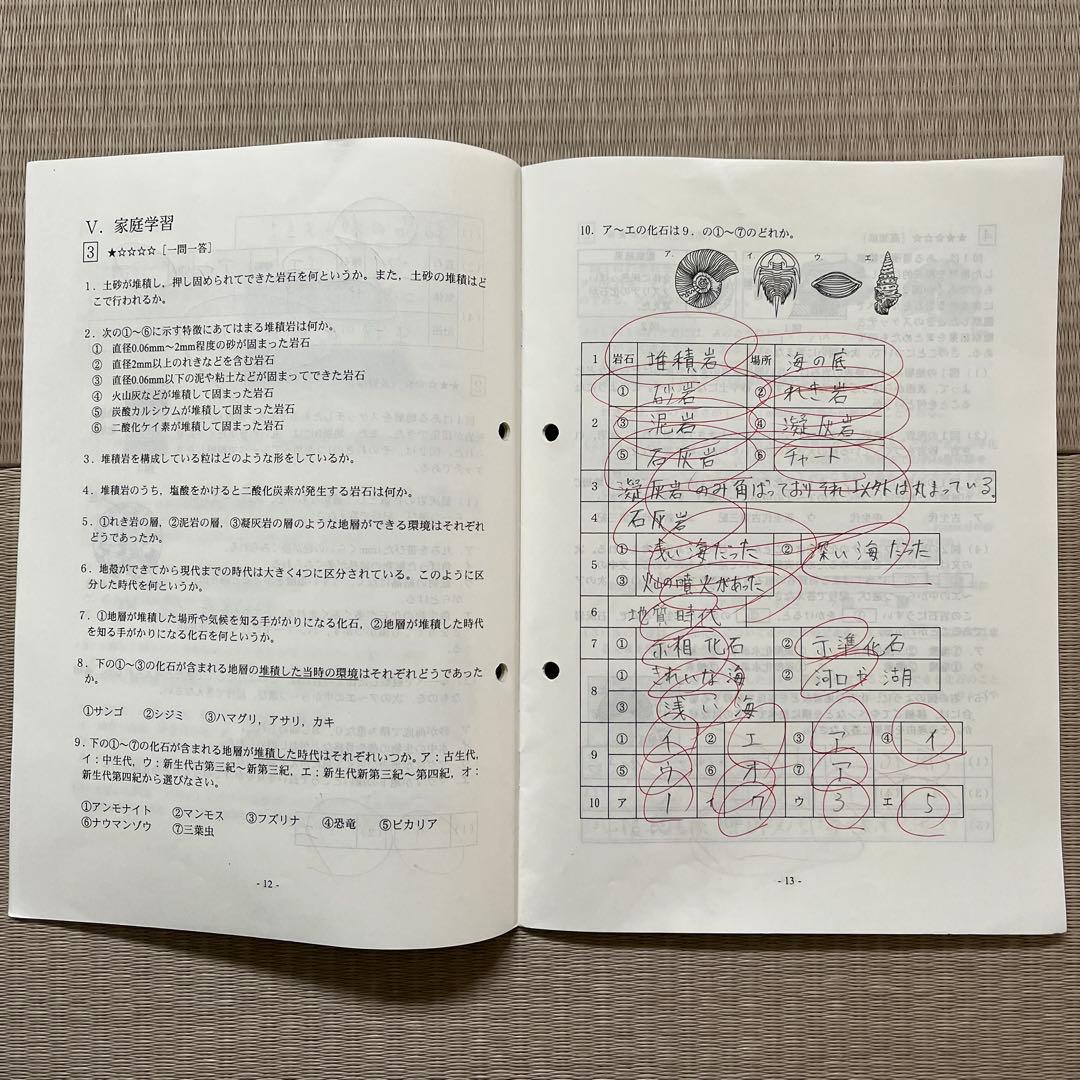 Ⅴ．家庭学習
3 ★☆☆☆☆［一問一答］
1．土砂が堆積し，押し固められてできた岩石を何というか。また，土砂の堆積はど
こで行われるか。
2．次の①～⑥に示す特徴にあてはまる堆積岩は何か。
① 直径0.06mm～2mm程度の砂が固まった岩石
② 直径2mm以上のれきなどを含む岩石
③ 直径0.06mm以下の泥や粘土などが固まってできた岩石
④ 火山灰などが堆積して固まった岩石
⑤ 炭酸カルシウムが堆積して固まった岩石
⑥ 二酸化ケイ素が堆積して固まった岩石
3．堆積岩を構成している粒はどのような形をしているか。
4．堆積岩のうち，塩酸をかけると二酸化炭素が発生する岩石は何か。
5．①れき岩の層，②泥岩の層，③凝灰岩の層のような地層ができる環境はそれぞれ
どうであったか。
6．地殻ができてから現代までの時代は大きく4つに区分されている。このように区
分した時代を何というか。
7．①地層が堆積した場所や気候を知る手がかりになる化石，②地層が堆積した時代
を知る手がかりになる化石を何というか。
8．下の①～③の化石が含まれる地層の堆積した当時の環境はそれぞれどうであった
か。
①サンゴ ②シジミ ③ハマグリ，アサリ，カキ
9．下の①～⑦の化石が含まれる地層が堆積した時代はそれぞれいつか。ア：古生代，
イ：中生代，ウ：新生代古第三紀～新第三紀，エ：新生代新第三紀～第四紀，オ：
新生代第四紀から選びなさい。
①アンモナイト ②マンモス ③フズリナ ④恐竜 ⑤ビカリア
⑥ナウマンゾウ ⑦三葉虫
- 12 -
10．ア～エの化石は９．の①～⑦のどれか。
ア． イ． ウ． エ．
1 岩石 堆積岩 場所 海の底
① 砂岩 ② れき岩
2 ③ 泥岩 ④ 凝灰岩
⑤ 石灰岩 ⑥ チャート
3 凝灰岩のみ角ばっておりそれ以外は丸まっている。
4 石灰岩
5 ① 浅い海だった ② 深い海だった
③ 火山の噴火があった
6 地質時代
7 ① 示相化石 ② 示準化石
8 ① きれいな海 ② 河口や湖
③ 浅い海
9 ① イ ② エ ③ ア ④ イ
⑤ ウ ⑥ オ ⑦ ア
10 ア 1 イ 7 ウ 3 エ 5
- 13 -